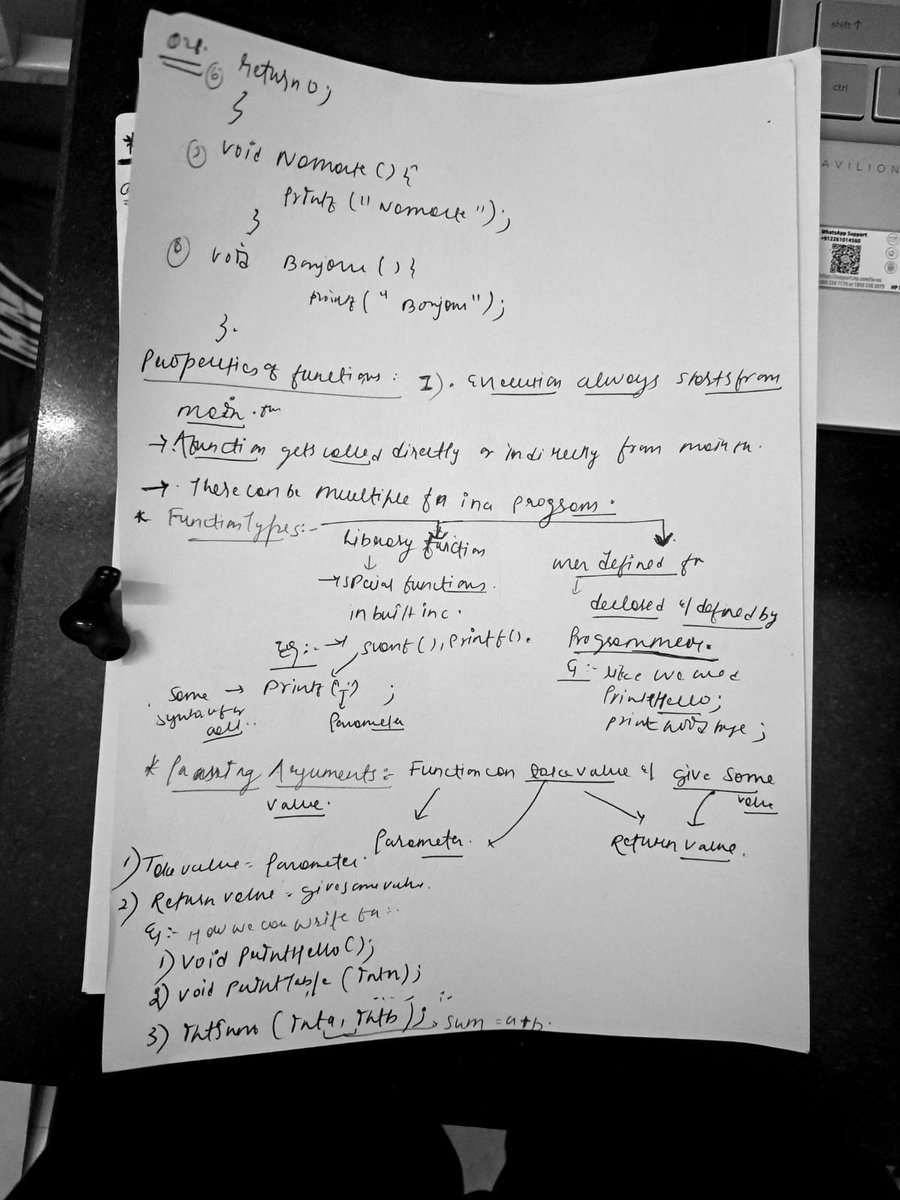 04.
⑥ return 0;
}
⑦ void Namaste () {
printf (" Namaste ");
}
⑧ void Bonjour () {
printf (" Bonjour ");
}.
Properties of functions: I). Execution always starts from
main. fn
→ A function gets called directly or indirectly from main fn.
→ . There can be multiple fn in a program.
* Function Types:-
Library function
↓
→ special functions
inbuilt in c.
Eg:- → scanf(), printf().
Some → printf ( ) ;
syntax for
all..
Parameter
user defined fn
↓
declared & defined by
Programmer.
G:- like we used
PrintHello;
print Goodbye;
* Passing Arguments:- Function can take value & give some
value.
value
Parameter.
Return value.
1) Take value = parameter.
2) Return value = give some value.
Eg:- How we can write fn:-
1) void printHello();
2) void printTable (int n);
3) int sum (int a, int b); sum = a+b.
shift ↑
ctrl
PAVILION
WhatsApp Support
+912261014560